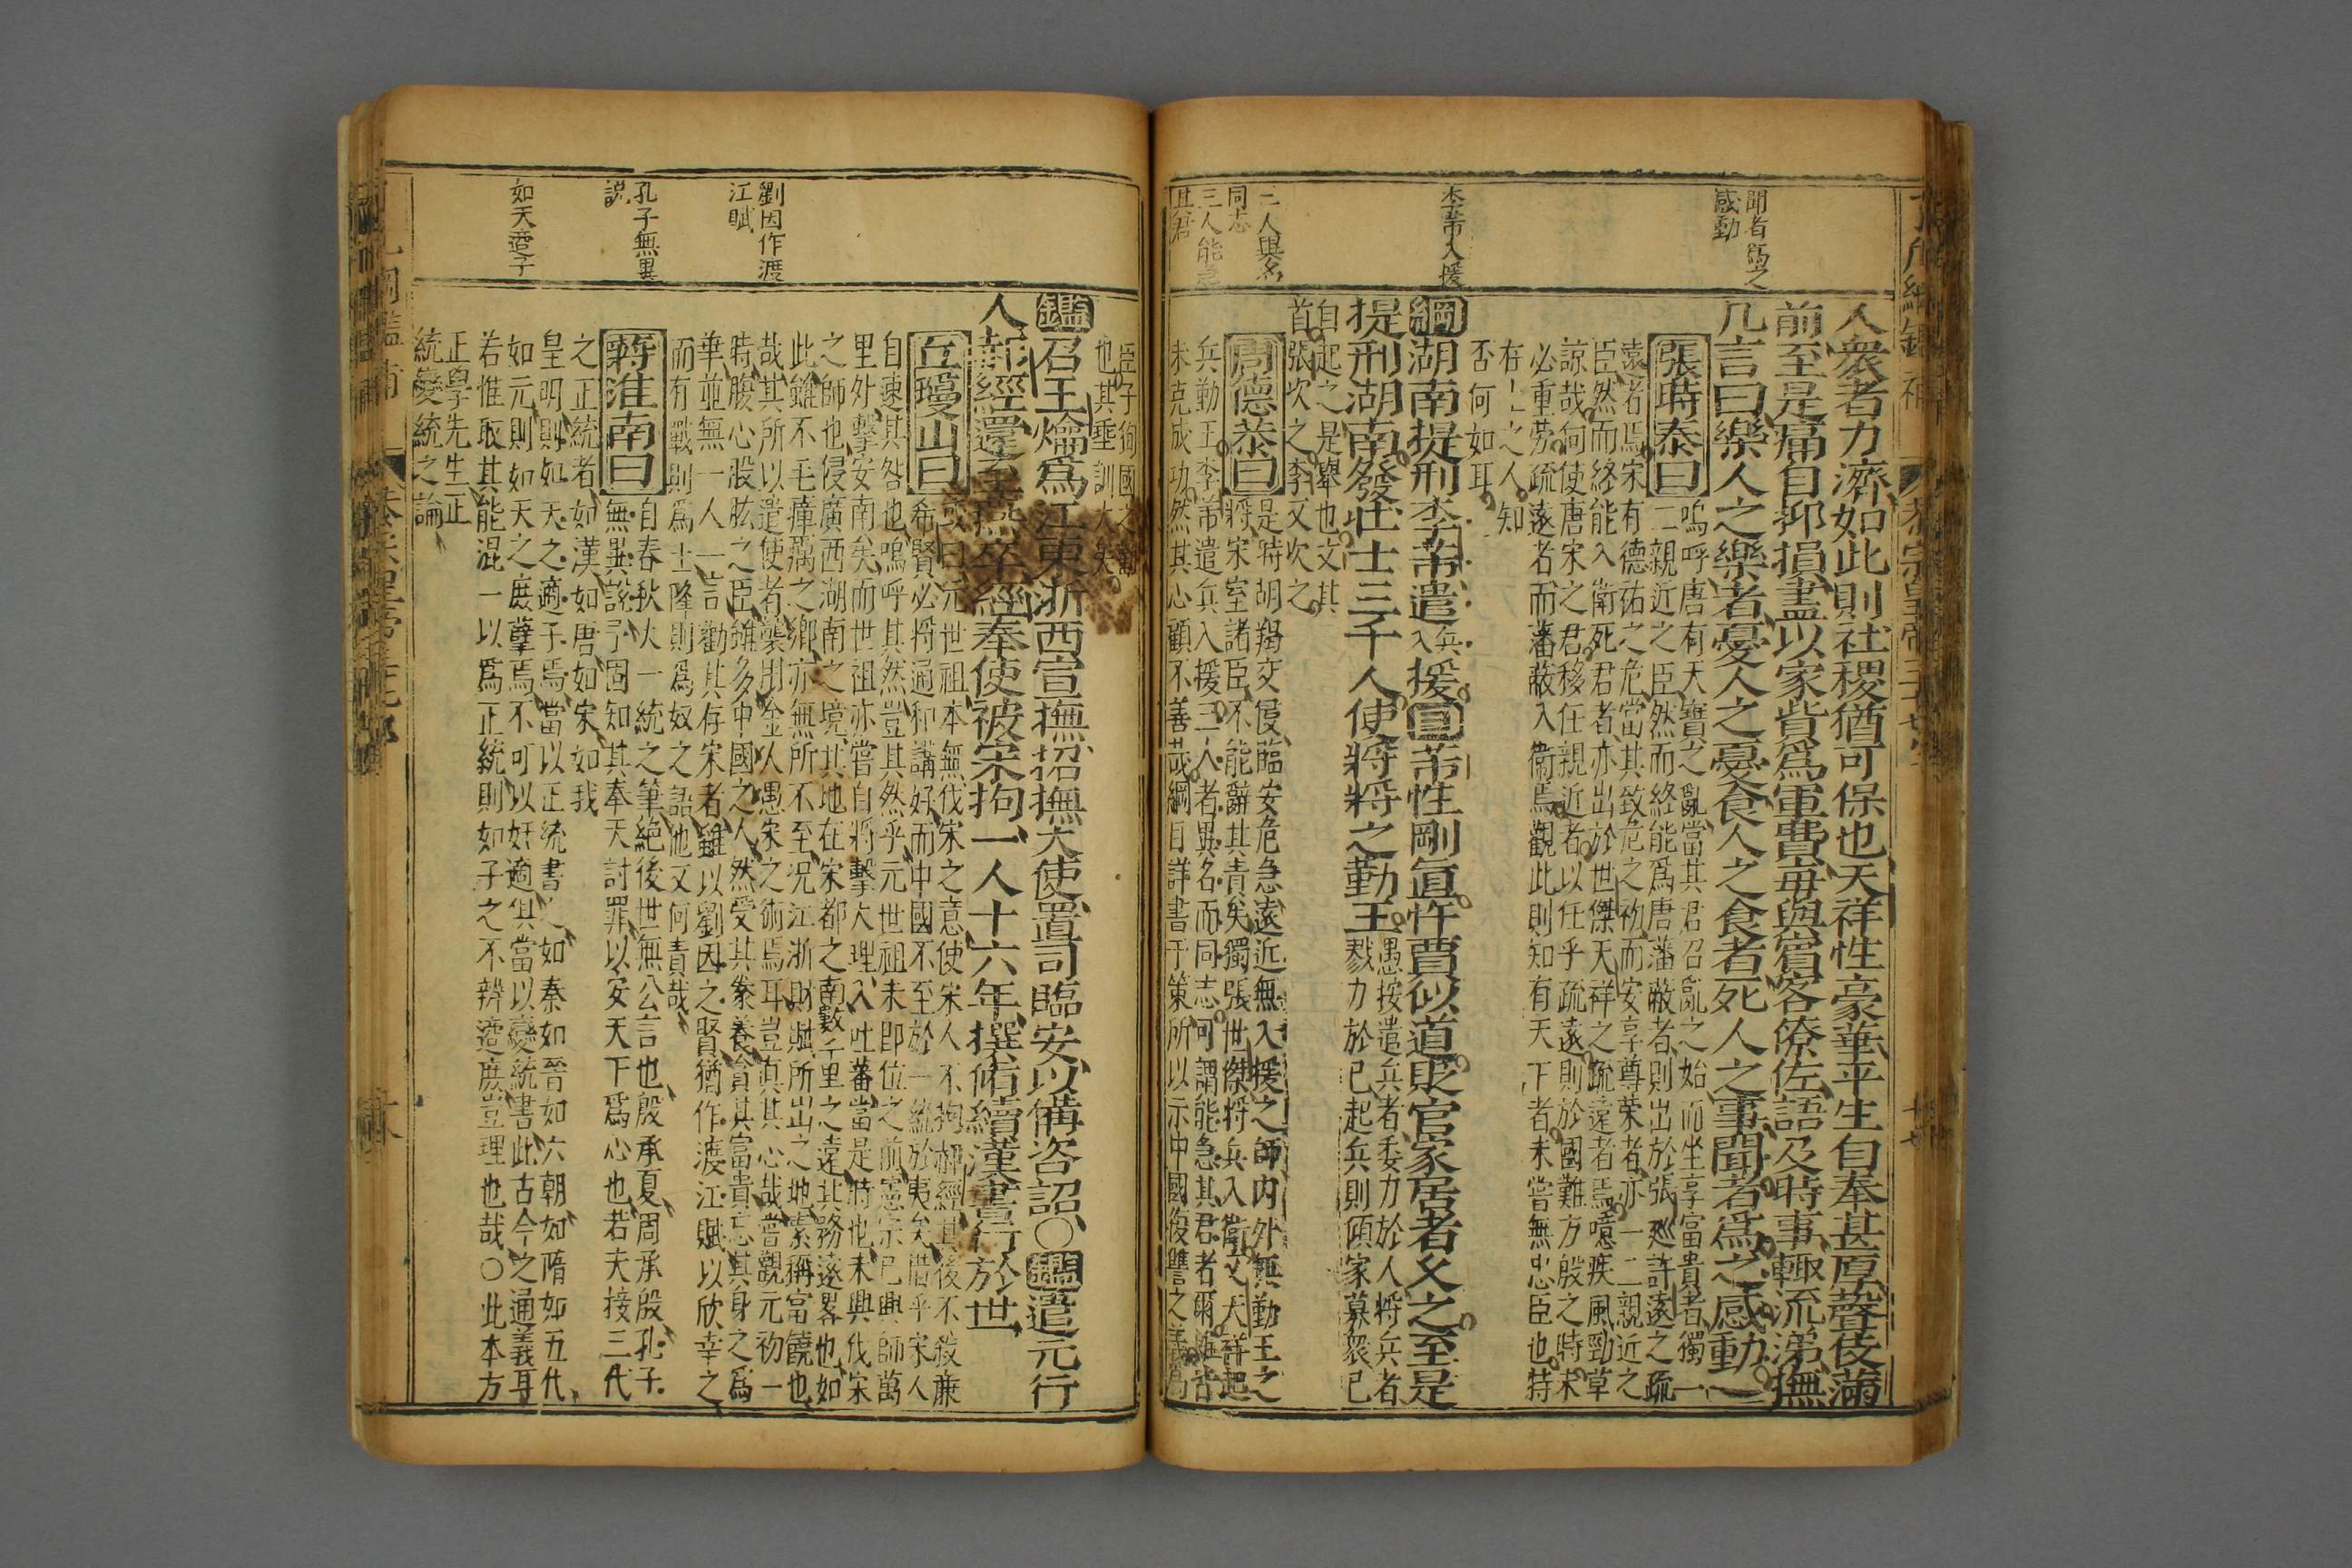 聞者爲之
感動
李芾入援
三人異名
同志
三人能急
其君
人衆者力濟如此則社稷猶可保也天祥性豪華平生自奉甚厚聲伎滿
前至是痛自抑損盡以家貲爲軍費每與賓客僚佐語及時事輒流涕撫
几言曰樂人之樂者憂人之憂食人之食者死人之事聞者爲之感動
張時泰曰
嗚呼唐有天寶之亂當其君召亂之始而坐享富貴者獨一
二親近之臣然而終能爲唐藩蔽者則出於張廵許遠之疏
遠者焉宋有德祐之危當其致危之初而安享尊榮者亦一二親近之
臣然而終能入衛死君者亦出於世傑天祥之疏遠者焉噫疾風勁草
諒哉何使唐宋之君移任親近者以任乎疏遠則於國難方殷之時未
必重勞疏遠者而藩蔽入衛焉觀此則知有天下者未嘗無忠臣也特
在上之人知
否何如耳
綱湖南提刑李芾遣兵入援目芾性剛直忤賈似道貶官家居者久之至是
提刑湖南發壯士三千人使將將之勤王
愚按遣兵者委力於人將兵者
戮力於已起兵則傾家募衆已
自起之是舉也文其
首張次之李又次之
周德恭曰
是時胡羯交侵臨安危急遠近無入援之師內外無勤王之
將宋室諸臣不能辭其責矣獨張世傑將兵入衛文天祥起
兵勤王李芾遣兵入援三人者異名而同志可謂能急其君者爾雖古
未克成功然其心顧不善哉綱目詳書于策所以示中國復讐之義爲
劉因作渡
江賦
孔子無異
說
如天適子
臣子徇國之
也其垂訓大矣
鑑召王爚爲江東浙西宣撫招撫大使置司臨安以備咨詔○鑑遣元行
人郝經還至燕卒經奉使被宋拘一人十六年撰脩續漢書行於世
丘瓊山曰
或曰元世祖本無伐宋之意使宋人不拘郝經其後不殺廉
希賢必將通和講好而中國不至於一統於夷矣惜乎宋人
自速其咎也嗚呼其然豈其然乎元世祖未即位之前憲宗已興師萬
里外擊安南矣而世祖亦嘗自將擊大理入吐蕃當是時也未興伐宋
之師也侵廣西湖南之境其地在宋都之南數千里之遠其務遠畧也如
此雖不毛瘴癘之鄉亦無所不至况江浙財賦所出之地素稱富饒也
哉其所以遣使者襲用金人愚宋之術焉耳豈真其心哉嘗觀元初一
時腹心股肱之臣雖多中國之人然受其豢養貪其富貴忘其身之爲
華並無一人一言勸其存宋者雖以劉因之賢猶作渡江賦以欣幸之
而有戰則爲士隆則爲奴之語他又何責哉
蔣淮南曰
自春秋大一統之筆絕後世無公言也殷承夏周承殷孔子
無異說予固知其奉天討罪以安天下爲心也若夫接三代
之正統者如漢如唐如宋如我
皇明則如天之適子焉當以正統書之如秦如晉如六朝如隋如五代
如元則如天之庶孽焉不可以奸適但當以變統書此古今之通義耳
若惟取其能混一以爲正統則如子之不辨適庶豈理也哉○此本方
正學先生正
統變統之論